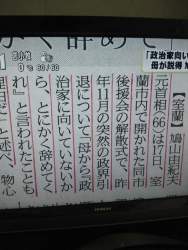 「政治家向い
母が説得
かく辞めて
苫小牧
【室蘭】鳩山由紀夫
元首相(66)は7日、室
蘭市内で開かれた同市
後援会の解散式で、昨
年11月の突然の政界引
退について「母から『政
治家に向いていないか
ら、とにかく辞めてく
れ』と言われたことも
理由だ」と述べ、物心